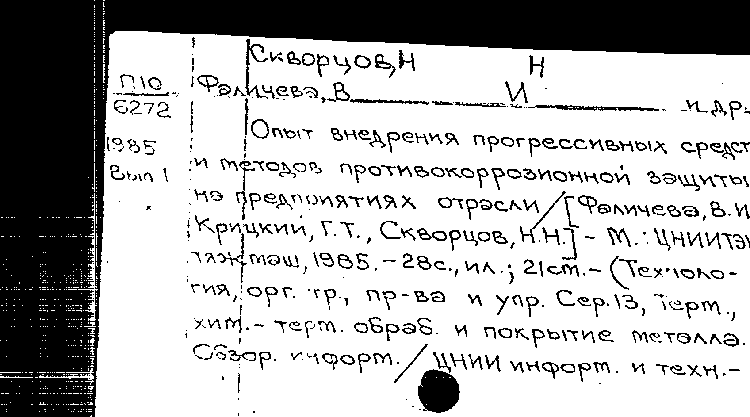 Скворцов, Н Н
П10
6272
1985
Вып 1
Фаличева, В И и др.
Опыт внедрения прогрессивных средст
и методов противокоррозионной защиты
на предприятиях отрасли / [Фаличева, В. И
Крицкий, Г. Т., Скворцов, Н. Н.] - М. : ЦНИИТЭИ
тяжмаш, 1985. - 28с., ил.; 21см. - (Техноло-
гия, орг. тр., пр-ва и упр. Сер. 13, Терм.,
хим. - терм. обраб. и покрытие металла.
Обзор. информ. / ЦНИИ информ. и техн. -